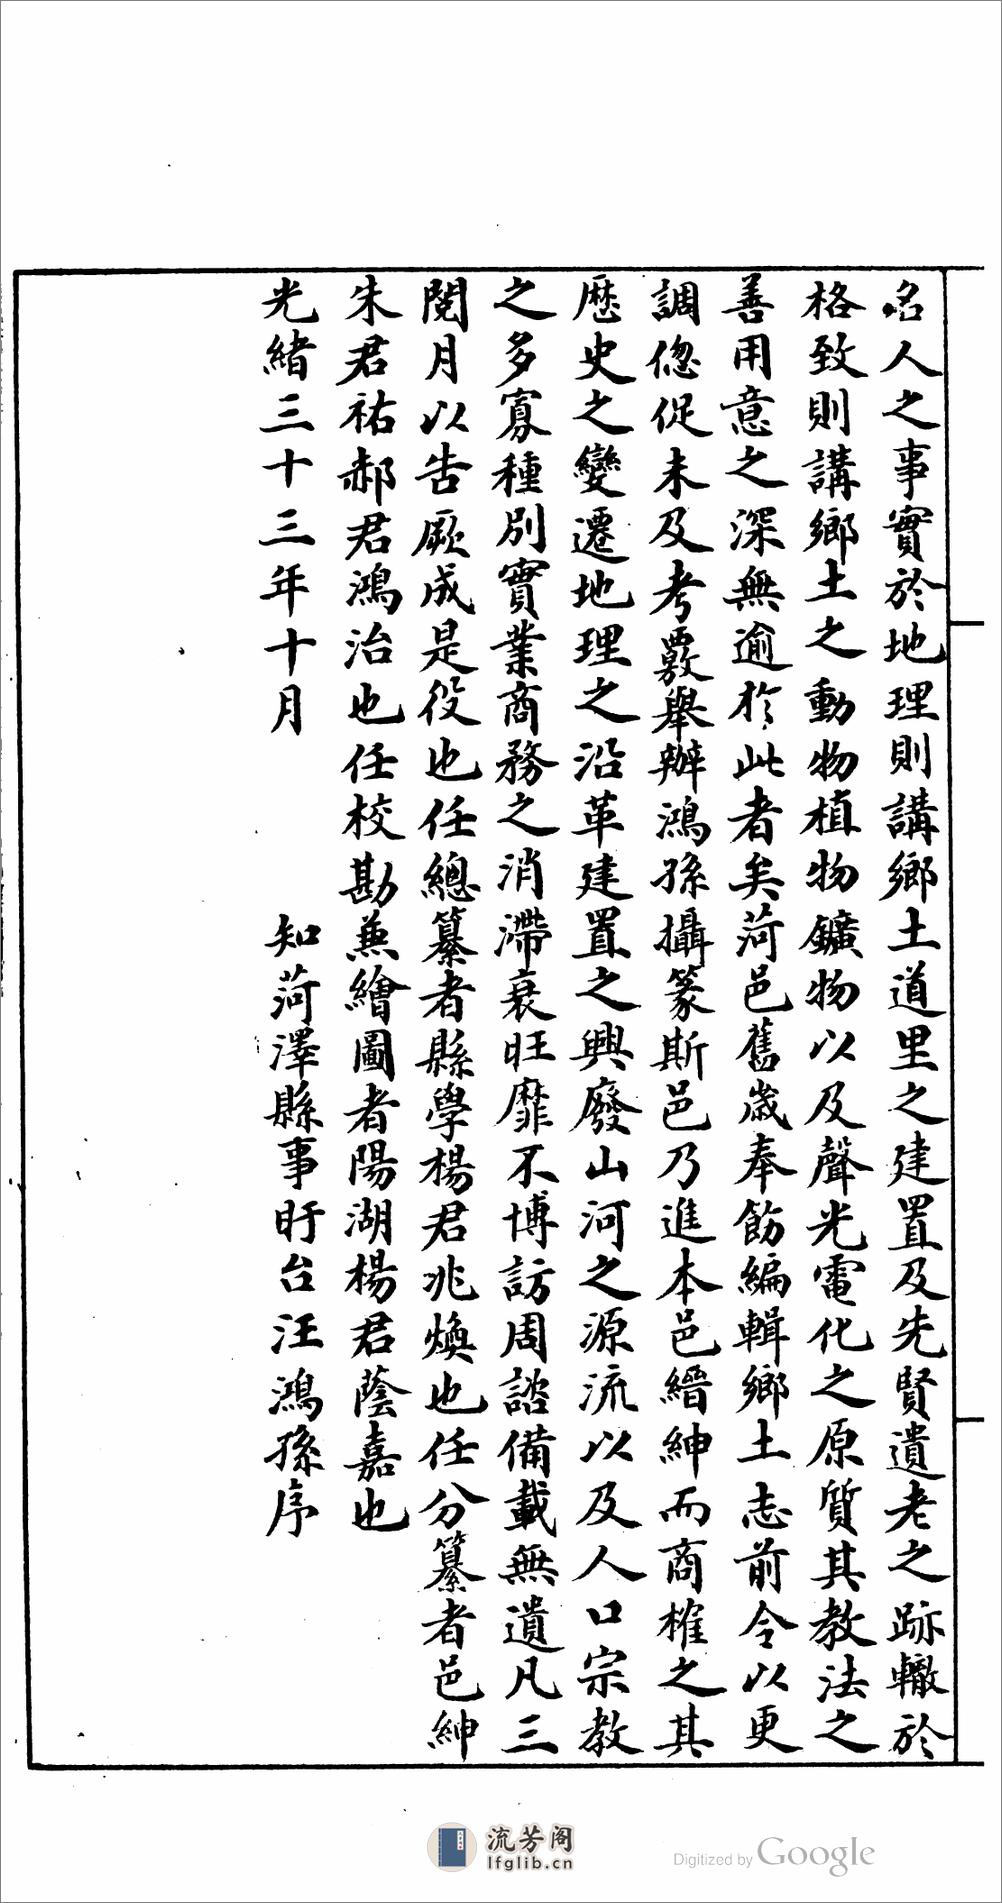 名人之事實於地理則講鄉土道里之建置及先賢遺老之跡轍於
格致則講鄉土之動物植物鑛物以及聲光電化之原質其教法之
善用意之深無逾於此者矣菏邑舊歲奉飭編輯鄉土志前令以更
調傯促未及考覈舉辦鴻孫攝篆斯邑乃進本邑縉紳而商榷之其
歷史之變遷地理之沿革建置之興廢山河之源流以及人口宗教
之多寡種別實業商務之消滯衰旺靡不博訪周諮備載無遺凡三
閱月以告厥成是役也任總纂者縣學楊君兆煥也任分纂者邑紳
朱君祐郝君鴻治也任校勘兼繪圖者陽湖楊君蔭嘉也
光緒三十三年十月
知菏澤縣事盱台汪鴻孫序
流芳阁
lfglib.cn
Digitized by Google